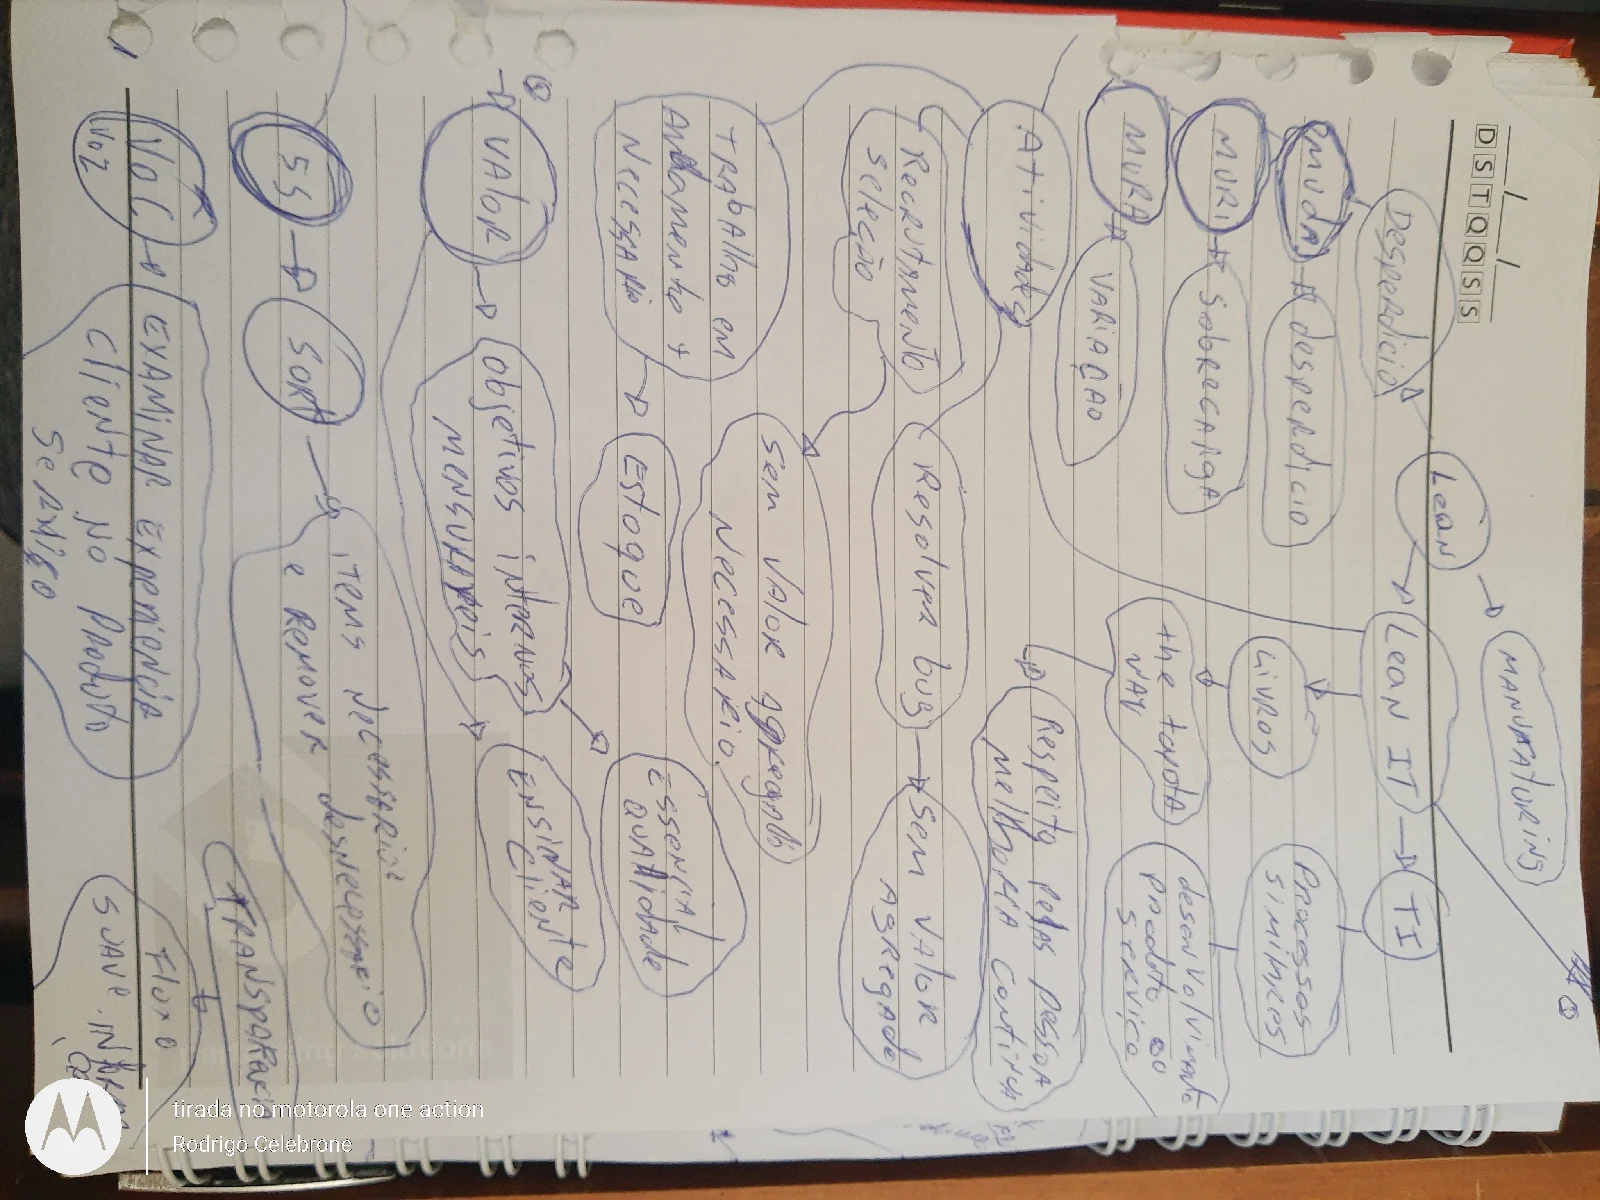 D S T Q Q S S
MANUFATURING
Lean
Desperdicio
Lean IT
TI
①
Muda
desperdicio
Livros
Processos
simílares
MURI
SobRECARGA
the toyota
WAY
desenvolvimento
produto ou
serviço
MURA
VARIAÇÃO
Atividades
Respeito pelas pessoa
Melhoria continua
Recrutamento
seleção
Resolver bug
Sem valor
Agregado
Sem valor agregado
Necessario
TRAbAlho em
Andamento +
Necessario
Estoque
Essencial
qualidade
①
VAloR
objetivos internos
mensuraveis
ENSINAR
Cliente
5S
SORT
itens necessarior
e Remover desnecessario
TRANSPARENCIA
VoC
Vo2
EXAMINAR EXPERIONCIA
cliente no Produto
Serviço
Fluxo
SUAVE
tirada no motorola one action
Rodrigo Celebrone